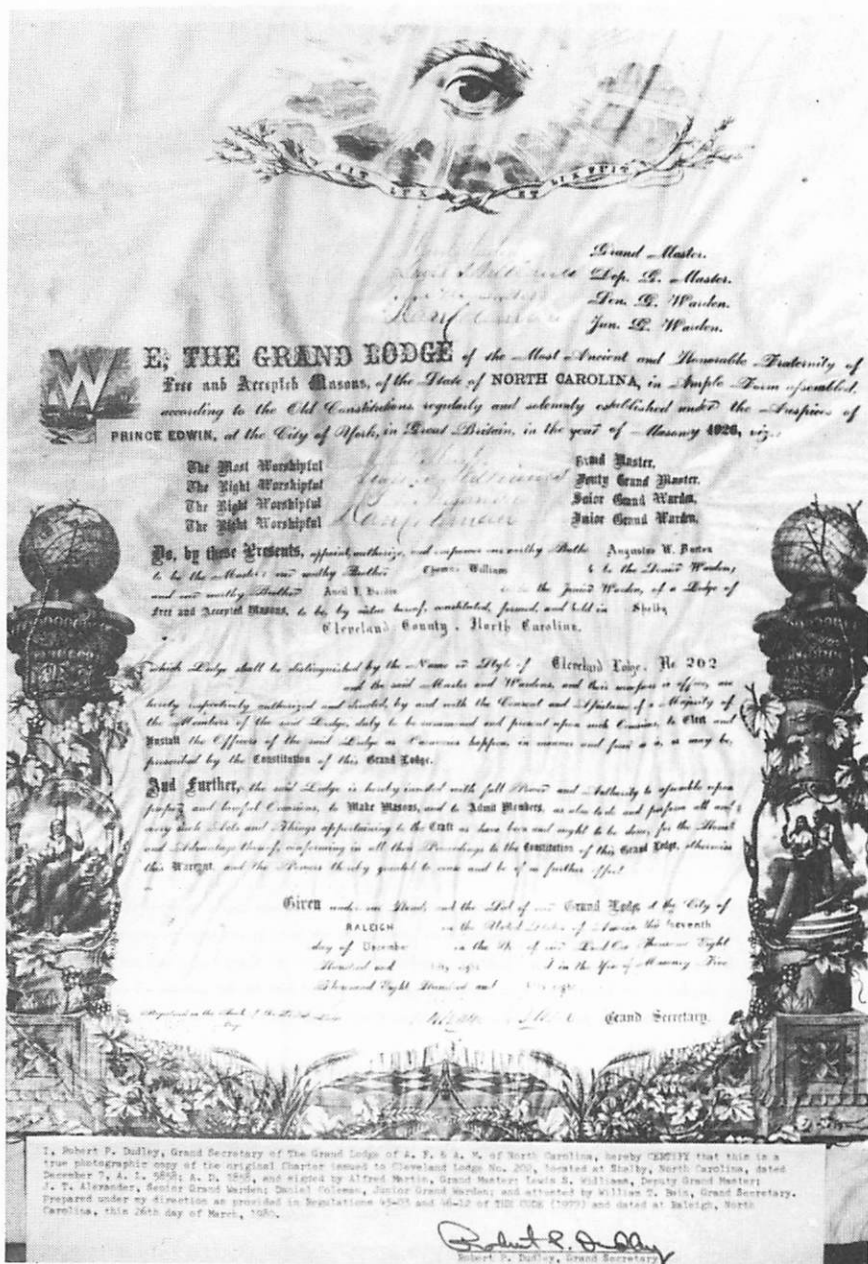 SIT LUX ET LUX FUIT
Grand Master.
Louis S. Williams Dep. G. Master.
Sen. G. Warden.
Danl Coleman Jun. G. Warden.
WE, THE GRAND LODGE of the Most Ancient and Honorable Fraternity of
Free and Accepted Masons, of the State of NORTH CAROLINA, in Ample Form assembled,
according to the Old Constitutions, regularly and solemnly established under the Auspices of
PRINCE EDWIN, at the City of York, in Great Britain, in the year of Masonry 4926, viz:
The Most Worshipful Grand Master.
The Right Worshipful Williams Grand Master.
The Right Worshipful Grand Warden.
The Right Worshipful Danl Coleman Junior Grand Warden.
Do, by these Presents, appoint, authorize, and empower our worthy Augustus W. Burton
to be the Master; our worthy Brother Thomas William to be the Senior Warden;
and our worthy Brother to be the Junior Warden, of a Lodge of
Free and Accepted Masons, to be, by virtue hereof, constituted, formed, and held in Shelby
Cleveland County, North Carolina.
which Lodge shall be distinguished by the Name or Style of Cleveland Lodge, No 202
and the said Master and Wardens, and their successors in office, are
hereby respectively authorized and directed, by and with the Consent and Assistance of a Majority of
the Members of the said Lodge, duly to be summoned and present upon such Occasions, to Elect and
Install the Officers of the said Lodge as Vacancies happen, in manner and form as is, or may be,
prescribed by the Constitution of this Grand Lodge.
And Further, the said Lodge is hereby invested with full Power and Authority to assemble upon
proper and lawful Occasions, to Make Masons, and to Admit Members, as also to do and perform all and
every such Acts and Things appertaining to the Craft as have been and ought to be done, for the Honor
and Advantage thereof, conforming in all their Proceedings to the Constitution of this Grand Lodge, otherwise
this Warrant, and the Powers thereby granted to cease and be of no further effect.
Given under our Hand, and the Seal of our Grand Lodge, at the City of
RALEIGH in the United States of America this Seventh
day of December in the of our Lord One Thousand Eight
Hundred and eight in the Year of Masonry Five
Thousand Eight Hundred and eight
Registered in the Book of the Grand Lodge
Grand Secretary.
I, Robert P. Dudley, Grand Secretary of The Grand Lodge of A. F. & A. M. of North Carolina, hereby CERTIFY that this is a
true photographic copy of the original Charter issued to Cleveland Lodge No. 202, located at Shelby, North Carolina, dated
December 7, A. L. 5858; A. D. 1858, and signed by Alfred Martin, Grand Master; Lewis S. Williams, Deputy Grand Master;
J. T. Alexander, Senior Grand Warden; Daniel Coleman, Junior Grand Warden; and attested by William T. Bain, Grand Secretary.
Prepared under my direction as provided in Regulations 45-03 and 46-12 of THE CODE (1977) and dated at Raleigh, North
Carolina, this 26th day of March, 1980.
Robert P. Dudley
Robert P. Dudley, Grand Secretary